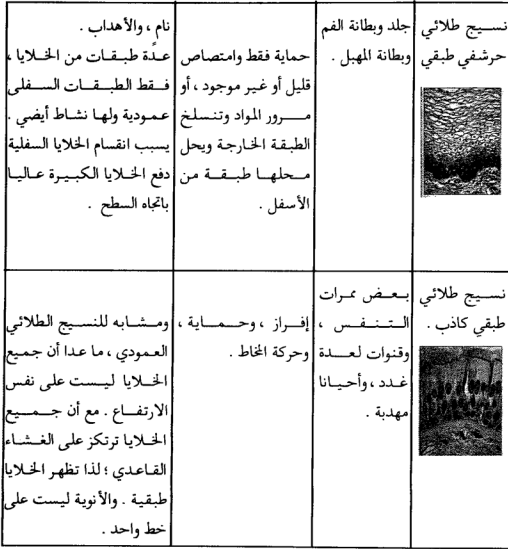 نسيج طلائي
حرشفي طبقي
جلد وبطانة الفم
وبطانة المهبل .
حماية فقط وامتصاص
قليل أو غير موجود ، أو
مرور المواد وتنسلخ
الطبقة الخارجة ويحل
محلها طبقة من
الأسفل .
نام ، والأهداب .
عدّة طبقات من الخلايا ،
فقط الطبقات السفلى
عمودية ولها نشاط أيضي .
يسبب انقسام الخلايا السفلية
دفع الخلايا الكبيرة عاليا
باتجاه السطح .
نسيج طلائي
طبقي كاذب .
بعض ممرات
التنفس ،
وقنوات لعدة
غدد ، وأحيانا
مهدبة .
إفراز ، وحماية ،
وحركة المخاط .
ومشابه للنسيج الطلائي
العمودي ، ما عدا أن جميع
الخلايا ليست على نفس
الارتفاع . مع أن جميع
الخلايا ترتكز على الغشاء
القاعدي ؛ لذا تظهر الخلايا
طبقية . والأنوية ليست على
خط واحد .